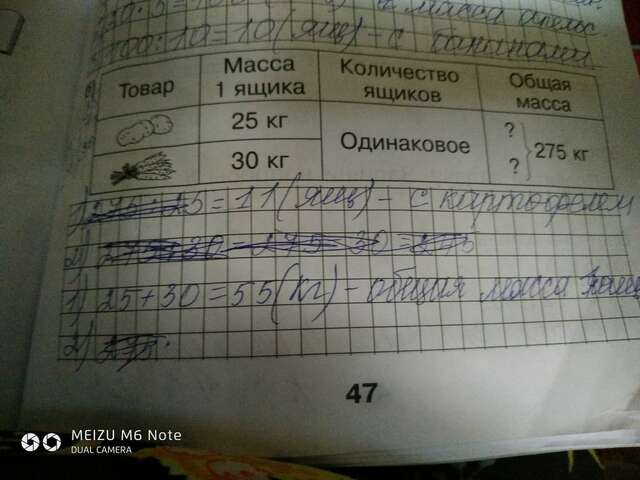 к масса апельс
100:10=10(ящ)- с бананами
Товар Масса 1 ящика Количество ящиков Общая масса
25 кг Одинаковое ? 275 кг
30 кг ?
1) 5=11(ящ)- с картофелем
2) 275:30=275-30=275
1) 25+30=55(кг)- общая масса
2)
47
MEIZU M6 Note
DUAL CAMERA